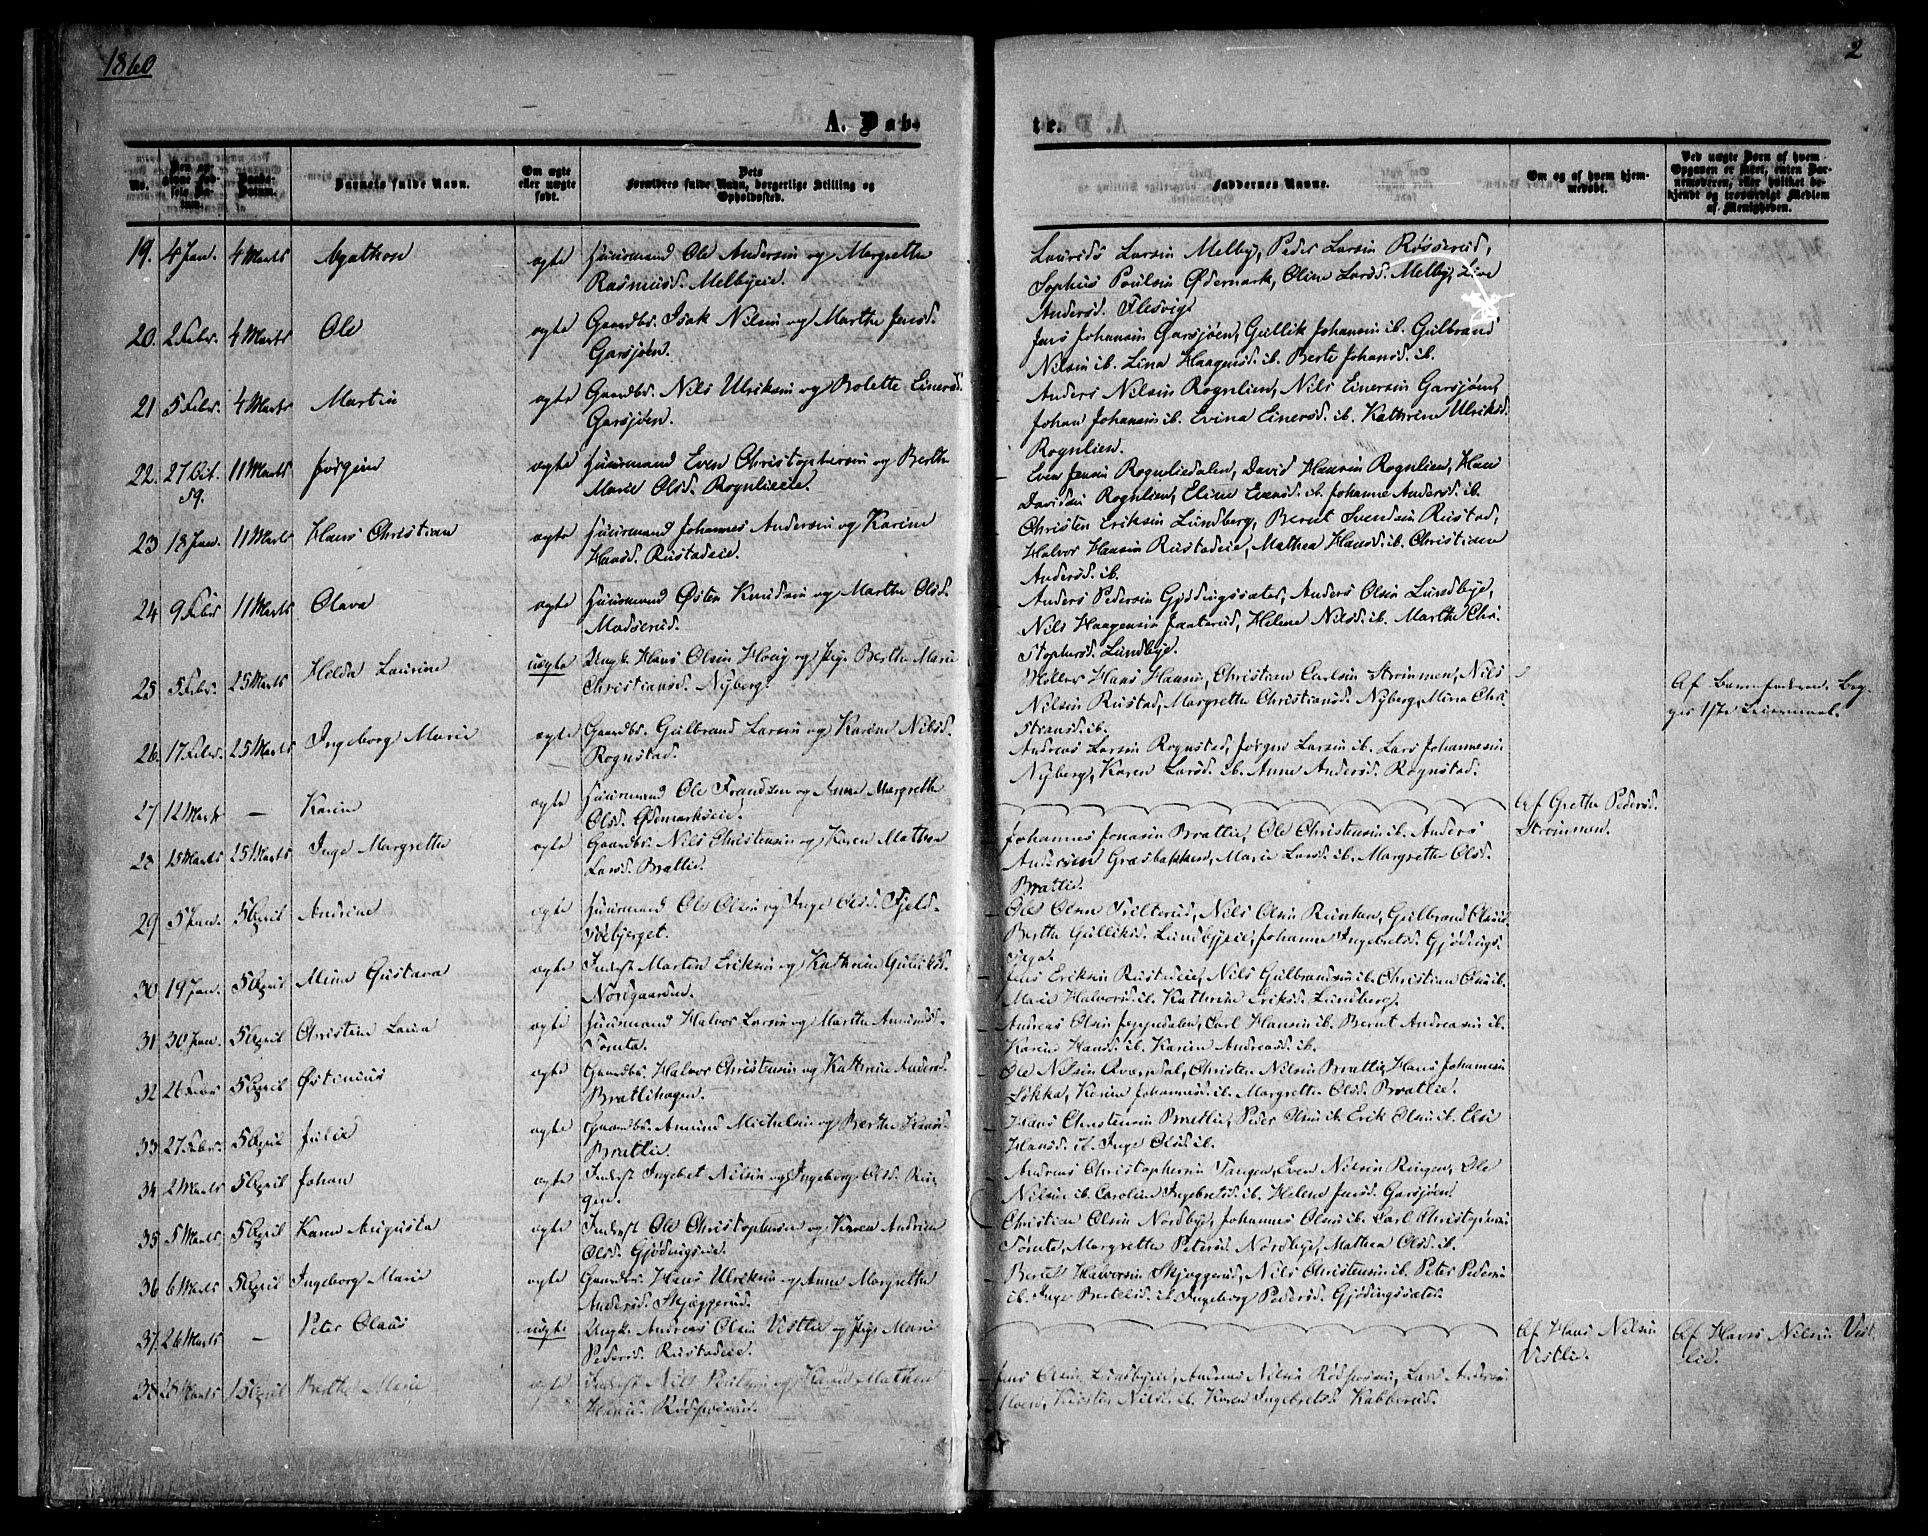 1860
2
A. Døb-
te.
No.
Den op-
givne Fød-
sels Da-
tum.
Daabs-
Datum.
Barnets fulde Navn.
Om ægte
eller uægte
født.
Dets
Forældres fulde Navn, borgerlige Stilling og
Opholdssted.
Faddernes Navne.
Om og af hvem hjem-
medøbt.
Ved uægte Børn af hvem
Opgaven er skeet, enten Bar-
nemoderen, eller hvilket be-
kjendt og troværdigt Medlem
af Menigheden.
19. 4 Jan. 4 Marts Agathon ægte Huusmand Ole Andersen og Margrethe
Rasmusd. Melbyeie.
Laurids Larsen Melby, Peder Larsen Røsserud,
Sophus Poulsen Ødemark, Oline Larsd. Melby, Line
Andersd. Flesvig.
20. 2 Febr. 4 Marts Ole ægte Gaardbr. Isak Nilsen og Marthe Jensd.
Garsjøen.
Jens Johansen Garsjøen, Gullik Johansen ib. Gulbrand
Nilsen ib. Lina Haagensd. ib. Berte Johansd. ib.
21 5 Febr. 4 Marts Martin ægte Gaardbr. Nils Ulriksen og Bolette Einersd.
Garsjøen.
Anders Nilsen Rognlien, Nils Einersen Garsjøen,
Johan Johansen ib. Evina Einersd. ib. Kathrine Ulriksd.
Rognlien.
22. 27 Oct. 59. 11 Marts Jørgen ægte Huusmand Even Christophersen og Berthe
Marie Olsd. Rognlieeie.
Even Jensen Rognliedalen, David Hansen Rognlien, Hans
Davidsen Rognlien, Eline Evensd. ib. Johanne Andersd. ib.
23 18 Jan. 11 Marts Hans Christian ægte Huusmand Johannes Andersen og Karine
Hansd. Rustadeie.
Christen Eriksen Lundberg, Bernt Svendsen Rustad,
Halvor Hansen Rustadeie, Mathea Hansd. ib. Christiane
Andersd. ib.
24 9 Febr 11 Marts Olava ægte Huusmand Østen Knudsen og Marthe Olsd.
Madserud.
Anders Pedersen Gjødingsæter, Anders Olsen Lundbye,
Nils Haagensen Jaaterud, Helene Nilsd. ib. Marthe Chri-
stophersd. Lundbye.
25 5 Febr. 25 Marts Hilda Laurine uægte Ungk. Hans Olsen Hovig og Pige Berthe Marie
Christiansd. Nyberg.
Møller Hans Hansen, Christian Carlsen Strømmen, Nils
Nilsen Rustad, Margrethe Christiansd. Nyberg, Mina Chri-
stiansd. ib.
Af Barnefaderen. Beg-
ges 1ste Leiermaal.
26. 17 Febr. 25 Marts Ingeborg Marie ægte Gaardbr. Gulbrand Larsen og Karine Nilsd.
Rognstad.
Andreas Larsen Rognstad, Jørgen Larsen ib. Lars Johannesen
Nyberg, Karen Larsd. ib. Anne Andersd. Rognstad.
27 12 Marts — Karin ægte Huusmand Ole Frandsen og Anne Margrethe
Olsd. Ødemarkseie.
Af Grethe Pedersd.
Strømmen.
28 15 Marts 25 Marts Inge Margrethe ægte Gaardbr. Nils Christensen og Karen Mathea
Larsd. Brattlie.
Johannes Jonasen Brattlie, Ole Christensen ib. Anders
Andersen Græsbakken, Marie Larsd. ib. Margrethe Olsd.
Brattlie.
29 5 Jan. 5 April Andrine ægte Huusmand Ole Olsen og Inge Olsd. Fjeld-
Bertha Gulliksd. Lundbyeie, Johanne Ingebretsd. Gjødings-
30 19 Jan. 5 April Mina Gustava ægte Inderst Martin Eriksen og Kathrine Gulliksd.
Nordgaarden.
Jens Eriksen Rustadeie, Nils Gulbrandsen ib. Christian Olsen ib.
Marie Halvorsd. ib. Kathrine Eriksd. Lundberg.
31 30 Jan. 5 April Christine Laura ægte Huusmand Halvor Larsen og Marthe Amundsd.
Tomta.
Andreas Olsen Jeppedalen, Carl Hansen ib. Bernt Andreasen ib.
Karen Hansd. ib. Karen Andreasd. ib.
32 26 Febr 5 April Østenius ægte Gaardbr. Halvor Christensen og Kathrine Andersd.
Brattlihagen.
Ole Nilsen Qværndal, Christen Nilsen Brattlie, Hans Johannesen
Løkka, Karen Johannesd. ib. Margrethe Olsd. Brattlie.
33 27 Febr. 5 April Julie ægte Gaardbr. Amund Michelsen og Berthe
Brattlie.
Hans Christensen Brattlie, Peder Olsen ib. Erik Olsen ib. Else
Hansd. ib. Inge Olsd. ib.
34 2 Marts 5 April Johan ægte Inderst Ingebret Nilsen og Ingeborg Olsd. Rin-
gen.
Andreas Christophersen Tangen, Even Nilsen Ringen, Ole
Nilsen ib. Caroline Ingebretsd. ib. Helene Jensd. Garsjøen.
35 5 Marts 5 April Karen Augusta ægte Inderst Ole Christophersen og Karen Andrine
Olsd. Gjødingseie.
Christian Olsen Nordby, Johannes Olsen ib. Carl Christophersen
Tomte, Margrethe Petersd. Nordbye, Mathea Olsd. ib.
36 6 Marts 5 April Ingeborg Marie ægte Gaardbr. Hans Ulriksen og Anne Margrethe
Andersd. Skjæggerud.
Bertel Halvorsen Skjæggerud, Nils Christensen ib. Peter Pedersen
ib. Inge Bertelsd. ib. Ingeborg Pedersd. Gjødingsæter.
37. 26 Marts — Peter Olaus uægte Ungk. Andreas Olsen Vestlie og Pige Marie
Pedersd. Rustadeie.
Af Hans Nilsen
Vestlie.
Af Hans Nilsen Vest-
lie.
38 28 Marts 15 April Berthe Marie ægte Inderst Nils Poulsen og Karen Mathea
Jens Olsen Lundbyeie, Andreas Nilsen Lars Andersen
Moen, Kirstin Nilsd. ib. Karen Ingebretsd. Kabberud.